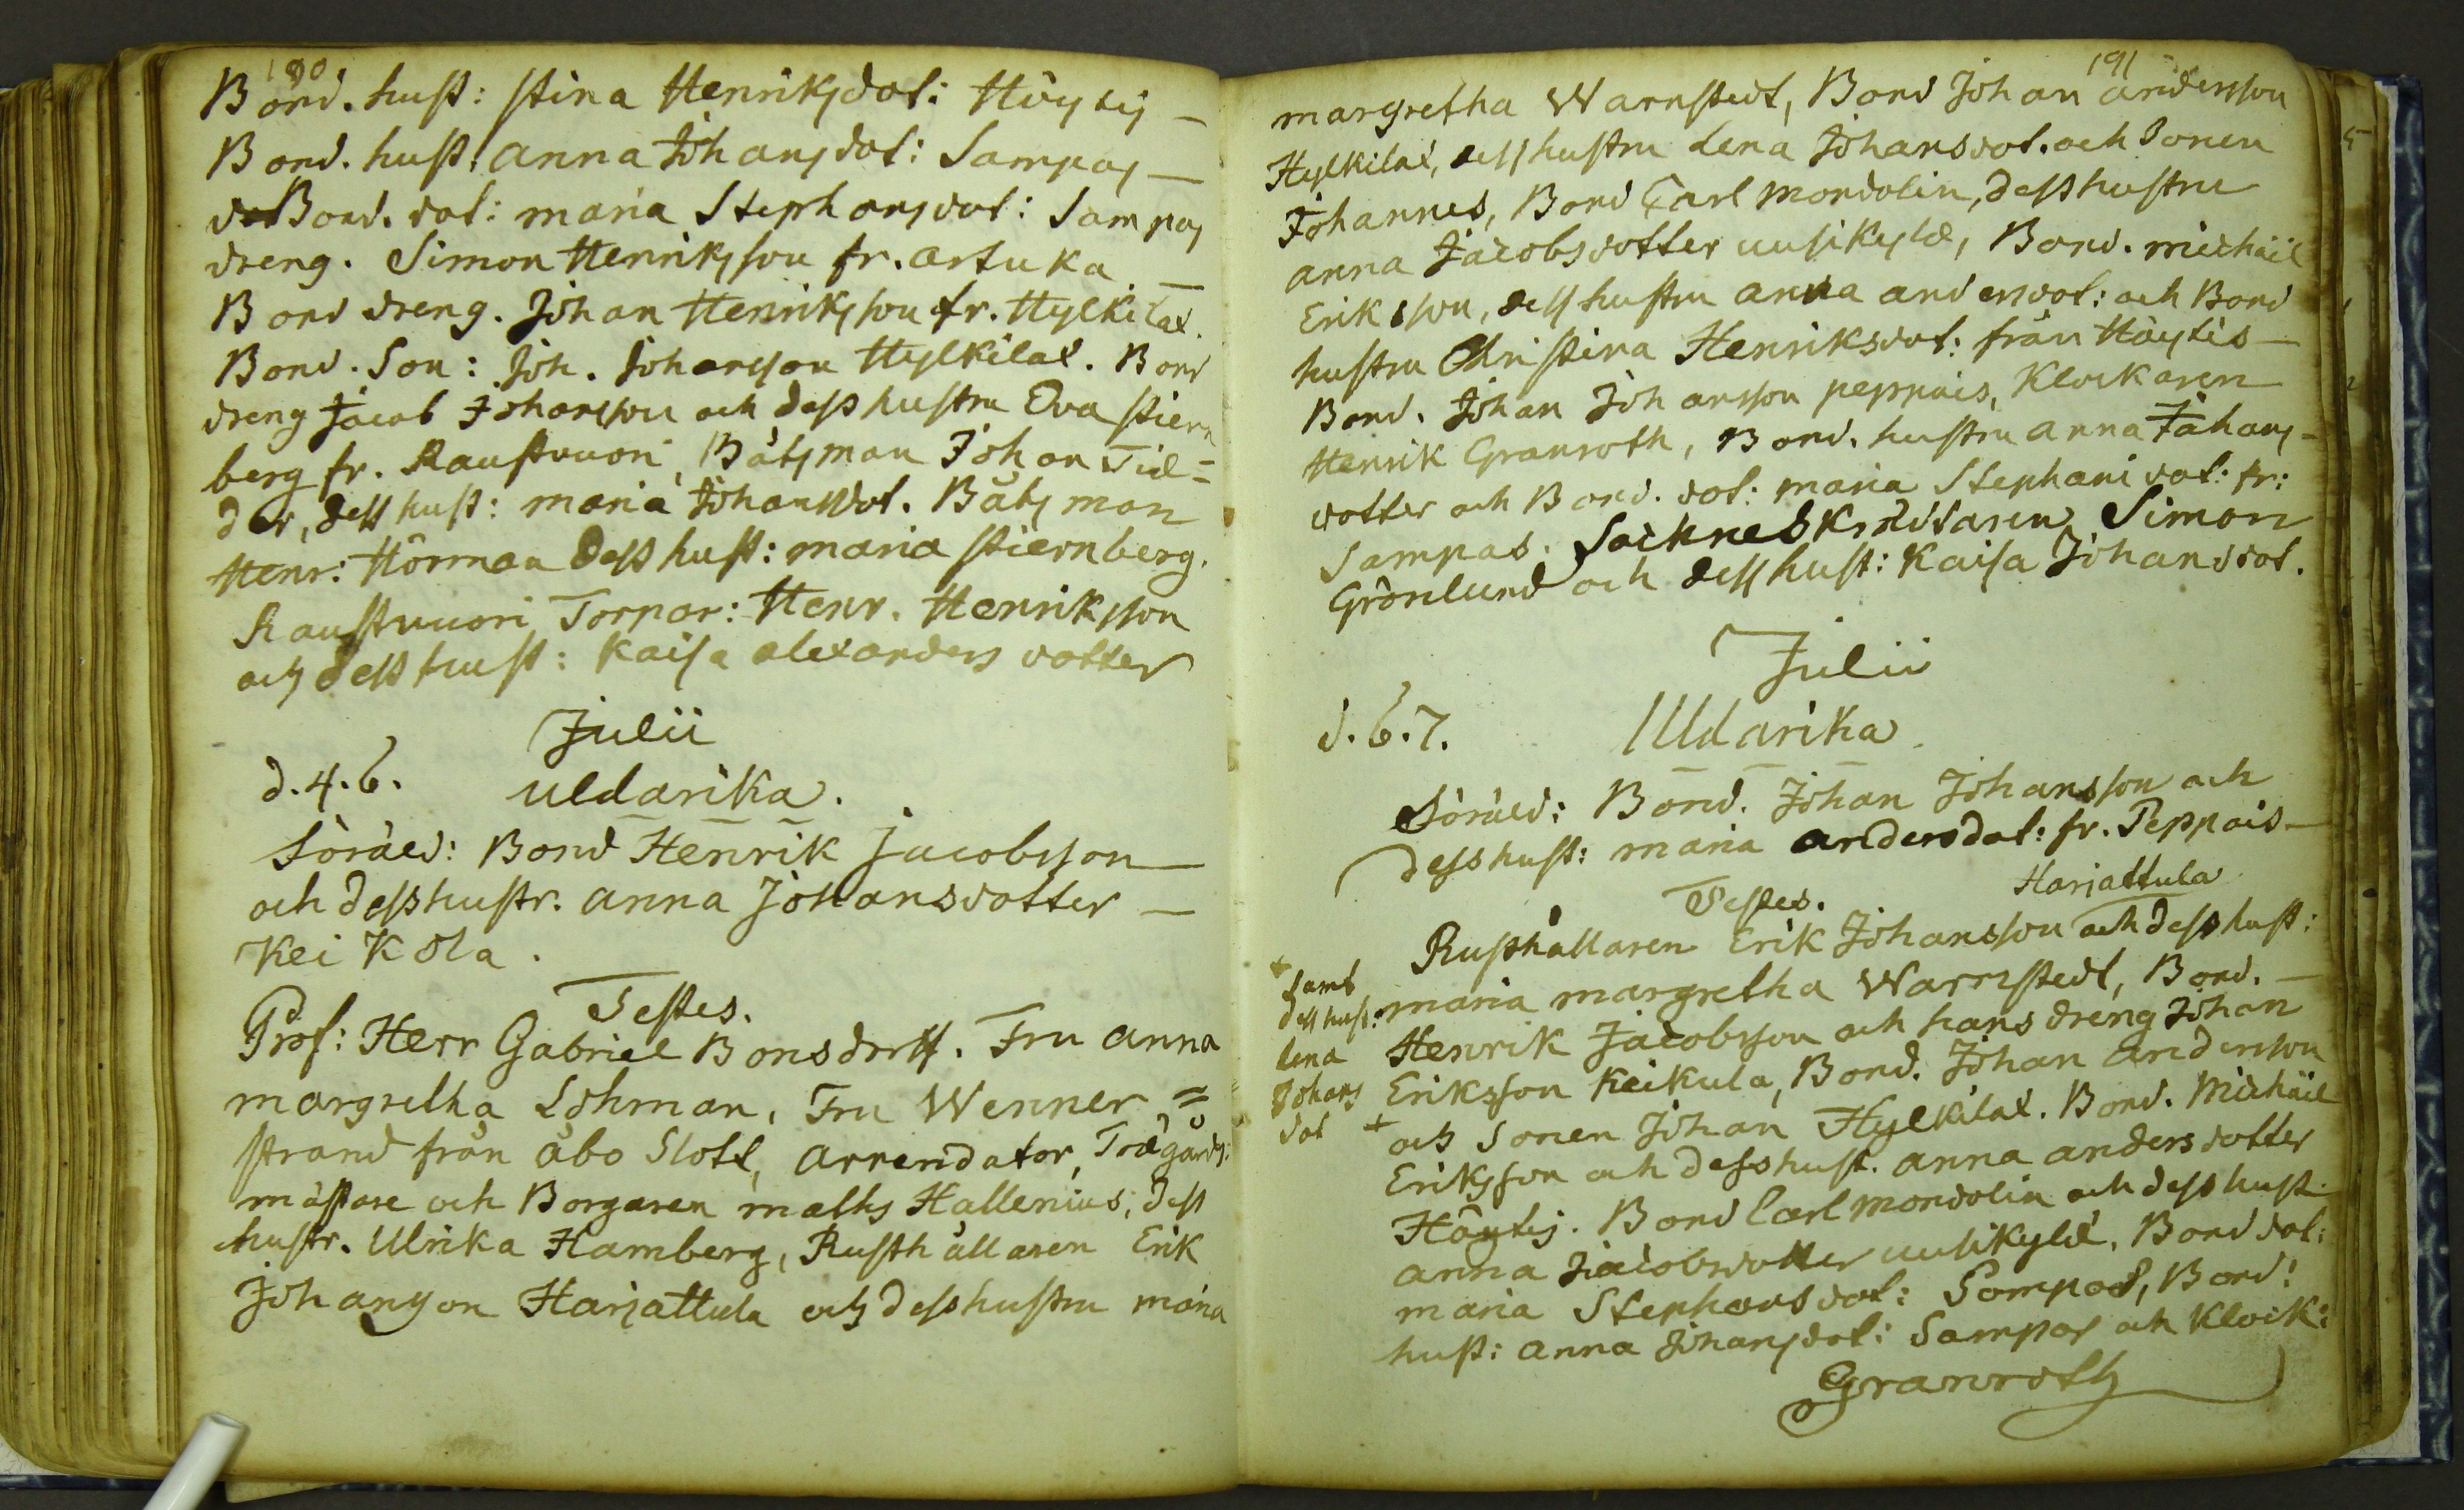 190
Bond. hust: Stina Henriksdot: Höytis –
Bond. hust: Anna Johansdot: Sampas –
Bond. dot: Maria Stephansdot: Sampas
dreng. Simon Henriksson fr. Artuka –
Bond dreng. Johan Henriksson fr. Hylkilax.
Bond. Son: Joh. Johansson Hylkilax. Bond
dreng Jacob Johansson och dess hustru Eva Stiern
berg fr. Raustvuori, Båtsman Johan Tid=
der, dess hust: Maria Johansdot. Båtsman
Henr: Hörman dess hust: Maria Stiernberg.
Raustvuori Torpar: Henr. Henriksson
och dess hust: Kaisa Alexanders dotter
Julii
d. 4. 6. Uldarika.
Föräld: Bond Henrik Jacobsson
och dess hustr. Anna Johansdotter –
Keikola.
Testes.
Prof: Herr Gabriel Bonsdorff. Fru Anna
Margretha Lohman, Fru Wenner=
strand från Åbo Slott, Arrendator, Trägårds:
mästare och Borgaren Matths Hallenius, dess
hustr. Ulrika Hamberg, Rusthållaren Erik
Johansson Harjattula och dess hustru Maria
191
Margretha Warnstedt, Bond Johan Andersson
Hylkilax, dess hustru Lena Johansdot. och Sonen
Johannes, Bond Carl Mondolin, dess hustru
Anna Jacobsdotter Uusikylä, Bond. Michäel
Eriksson, dess hustru Anna Andersdot: och Bond
hustru Christina Henriksdot: från Höytis –
Bond. Johan Johansson Peppois, Klockaren
Henrik Granroth, Bond. hustru Anna Johans-
dotter och Bond. dot: Maria Stephansdot: fr:
Sampas. Sockneskräddaren Simon
Grönlund och dess hust: Kaisa Johansdot.
Julii
d. 6. 7. Uldarika.
Föräld: Bond. Johan Johansson och
dess hust: Maria Andersdot: fr. Peppois –
Testes. Harjattula
Rusthållaren Erik Johansson och dess hust:
Maria Margretha Warnstedt, Bond. –
Henrik Jacobsson och hans dreng Johan
Eriksson Keikula, Bond. Johan Andersson
+ och Sonen Johan Hylkilax. Bond. Michäel
+ samt
dess hust:
Lena
Johans
dot
Eriksson och dess hust. Anna Andersdotter
Höytis. Bond Carl Mondolin och dess hust
Anna Jacobsdotter Uusikylä. Bond dot:
Maria Stephansdot: Sampas, Bond:
hust: Anna Johansdot: Sampas och Klock:
Granroth